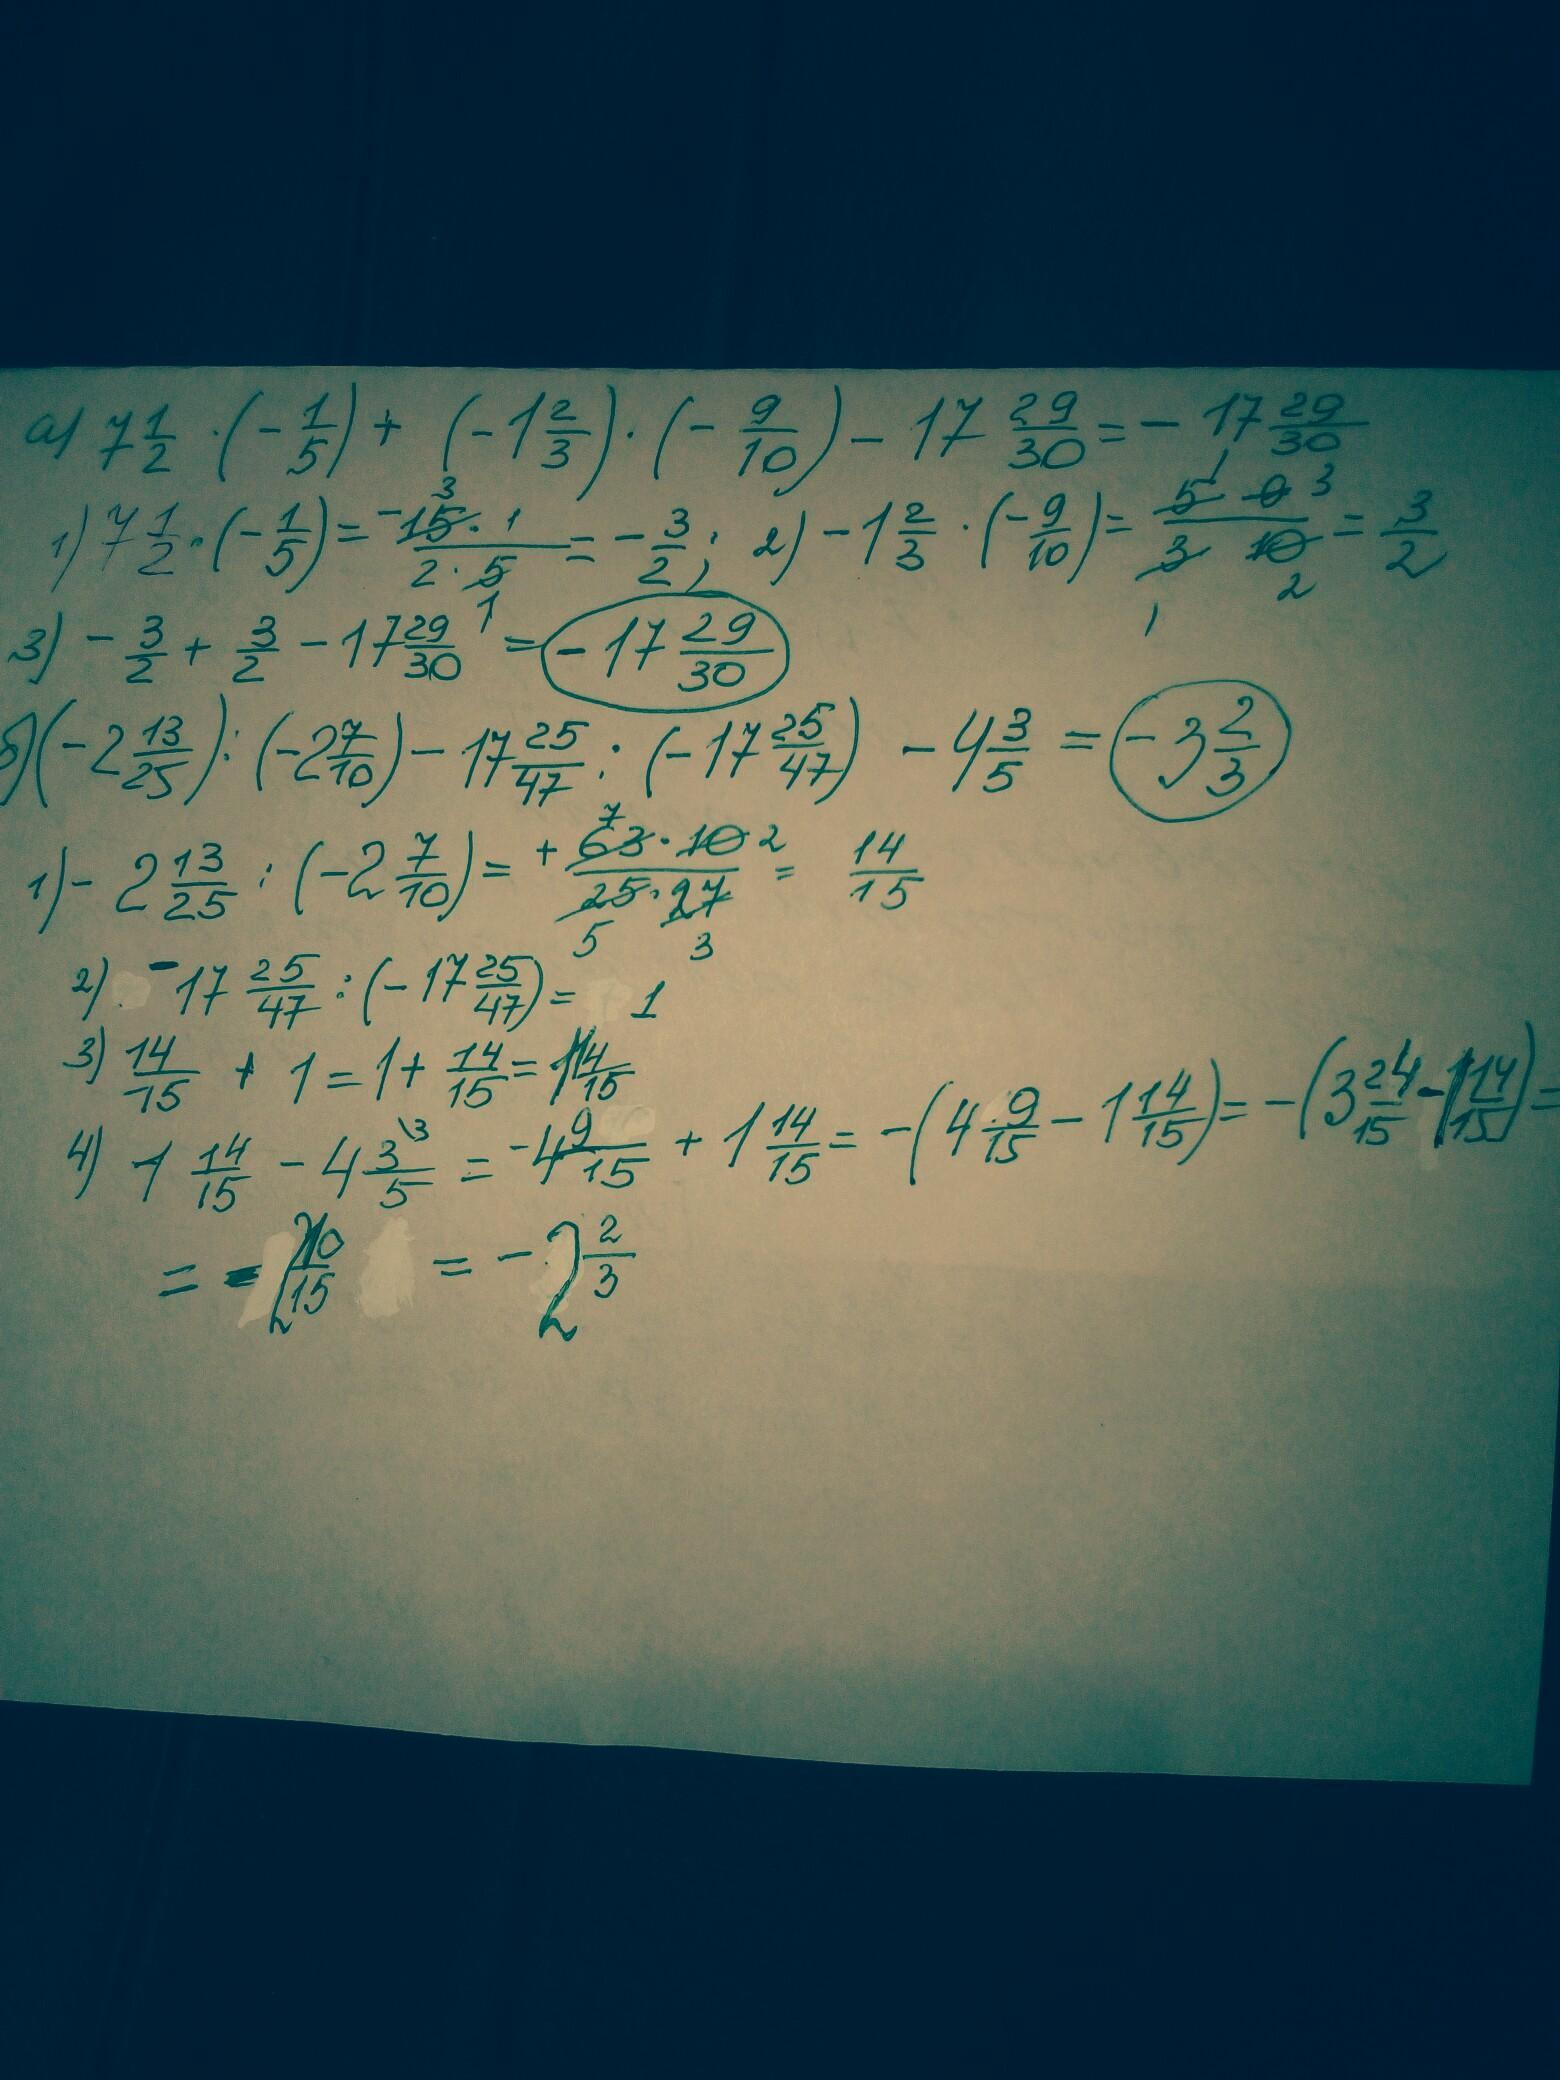 а) 7 1/2 · (- 1/5) + (-1 2/3) · (- 9/10) - 17 29/30 = - 17 29/30
1) 7 1/2 · (- 1/5) = -15·1/2·5 = - 3/2; 2) -1 2/3 · (- 9/10) = 5 9/3 10 = 3/2
3) - 3/2 + 3/2 - 17 29/30 = - 17 29/30
б) (-2 13/25) : (-2 7/10) - 17 25/47 : (-17 25/47) - 4 3/5 = -3 2/3
1) - 2 13/25 : (-2 7/10) = + 63·10/25·27 = 14/15
2) -17 25/47 : (-17 25/47) = 1
3) 14/15 + 1 = 1 + 14/15 = 1 14/15
4) 1 14/15 - 4 3/5 = -4 9/15 + 1 14/15 = -(4 9/15 - 1 14/15) = -(3 24/15 - 1 14/15) =
= - 2 10/15 = - 2 2/3